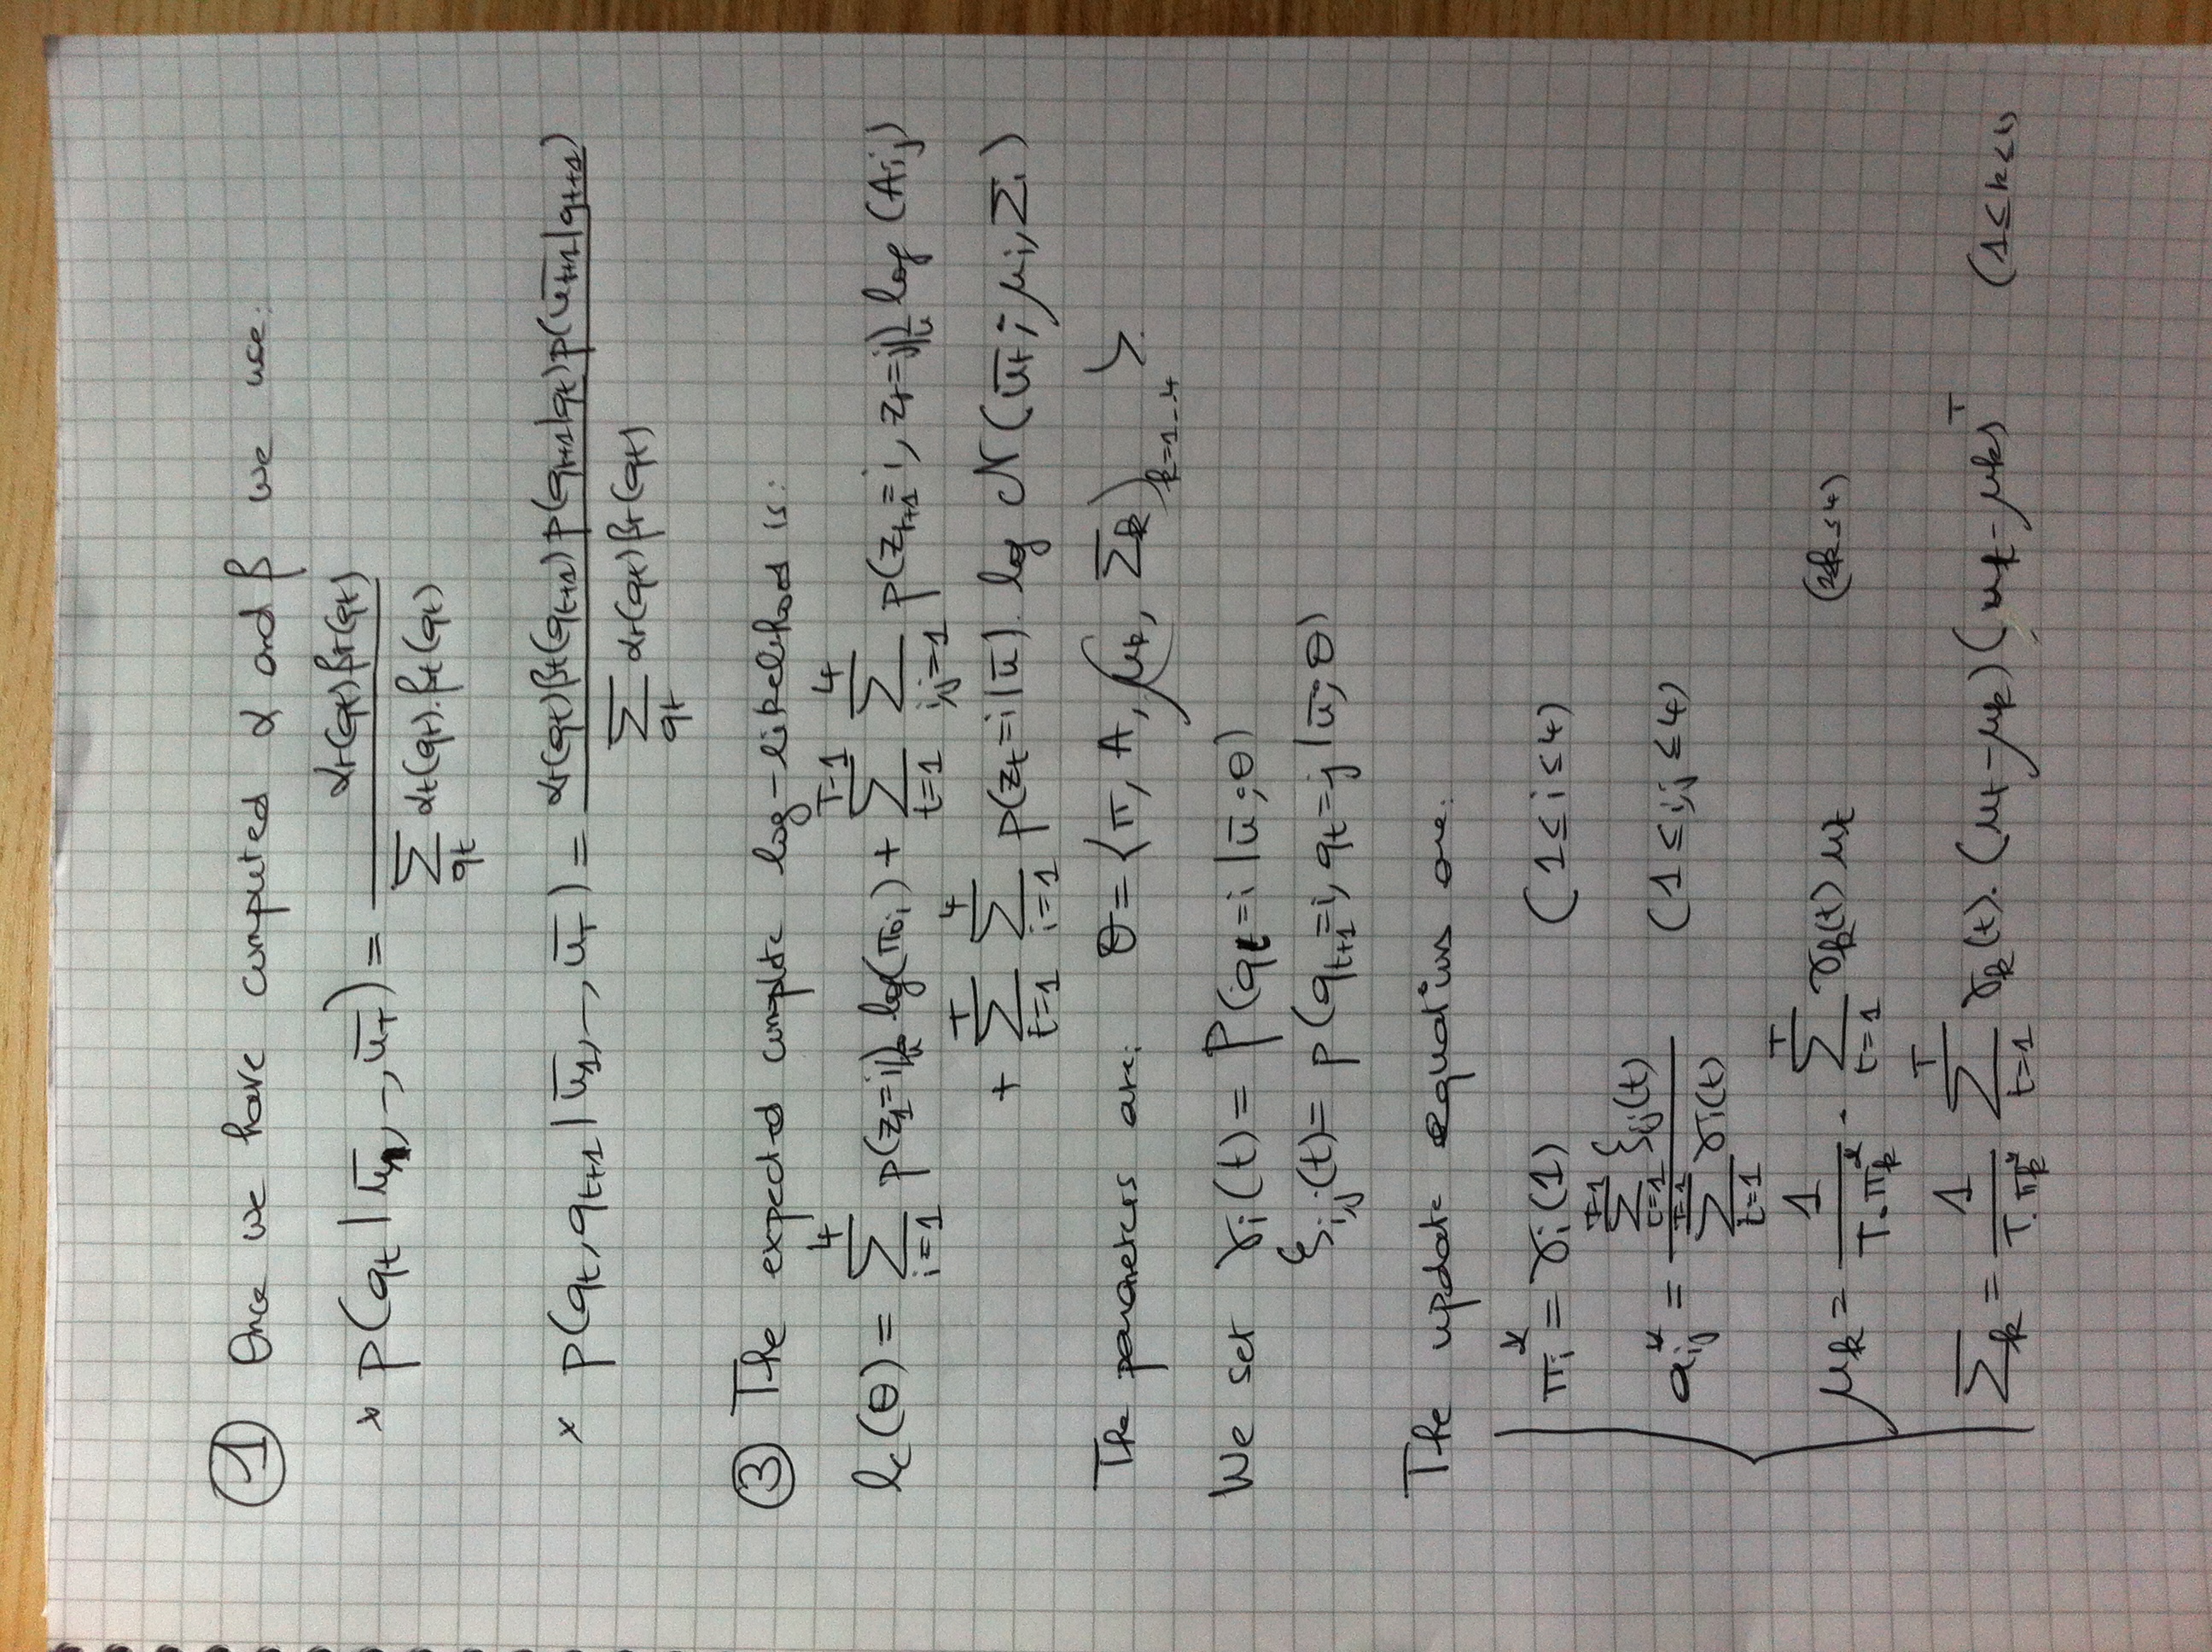 ① Once we have computed α and β we use:
× p(q_t | ū_1, –, ū_T) = α_t(q_t) β_t(q_t) / Σ_{q_t} α_t(q_t). β_t(q_t)
× p(q_t, q_{t+1} | ū_1, –, ū_T) = α_t(q_t) β_t(q_{t+1}) p(q_{t+1}|q_t) p(ū_{t+1}|q_{t+1}) / Σ_{q_t} α_t(q_t) β_t(q_t)
③ The expected complete log-likelihood is:
l_c(θ) = Σ_{i=1}^{4} p(z_1=i|ū) log(π_{0i}) + Σ_{t=1}^{T-1} Σ_{i,j=1}^{4} p(z_{t+1}=i, z_t=j|ū) log (A_{ij})
+ Σ_{t=1}^{T} Σ_{i=1}^{4} p(z_t=i|ū). log N(ū_t; μ_i, Σ_i)
The parameters are: θ = ⟨π, A, (μ_k, Σ_k)_{k=1--4} ⟩.
We set γ_i(t) = P(q_t=i |ū; θ)
ξ_{i,j}(t) = p(q_{t+1}=i, q_t=j |ū; θ)
The update equations are:
π_i^* = γ_i(1) (1≤i≤4)
a_{ij}^* = Σ_{t=1}^{T-1} ξ_{ij}(t) / Σ_{t=1}^{T-1} γ_i(t) (1≤i,j≤4)
μ_k = 1 / T.π_k^* . Σ_{t=1}^{T} γ_k(t) u_t (1≤k≤4)
Σ_k = 1 / T.π_k^* Σ_{t=1}^{T} γ_k(t). (u_t-μ_k)(u_t-μ_k)^T (1≤k≤4)